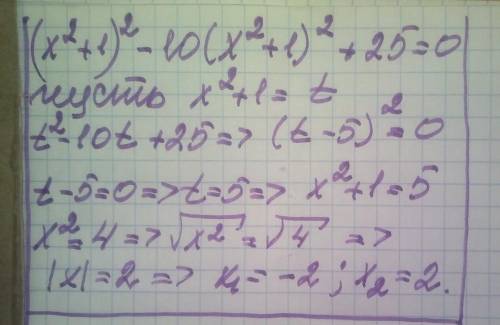 (x²+1)²-10(x²+1)²+25=0
пусть x²+1=t
t²-10t+25=>(t-5)²=0
t-5=0=>t=5=>x²+1=5
x²=4=>√x²=√4=>
|x|=2=>x₁=-2;x₂=2.